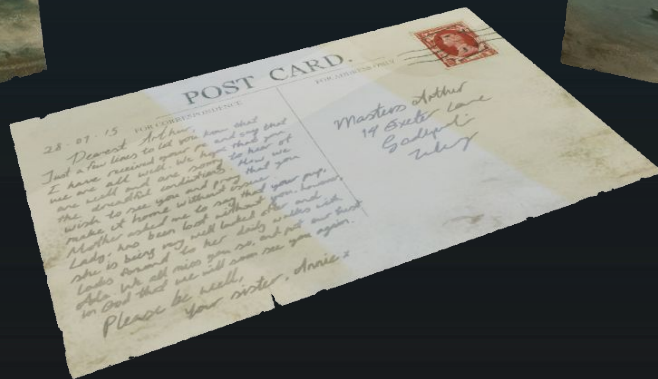 POST CARD.
FOR CORRESPONDENCE
FOR ADDRESS ONLY
28.07.15
Dearest Arthur,
Just a few lines to let you know that
I have received your and say that
we are all well. We hope that you
are well and are sorry to hear of
the dreadful conditions. How we
wish to see you and pray that you
make it home without issue.
Mother asked me to say that your pup,
Lady, has been lost without you, however,
she is being very well looked after and
looks forward to her daily walks with
We all miss you so, and put our trust
in God that we will soon see you again.
Please be well,
Your sister, Annie x
Masters Arthur
14 Exeter Lane